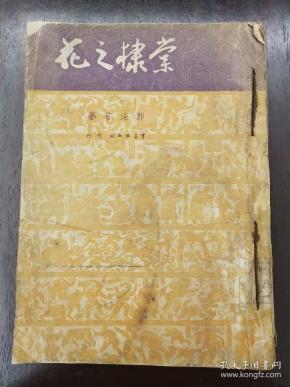 棠棣之花
郭沫若著
孔夫子旧书网
www.kongfz.com